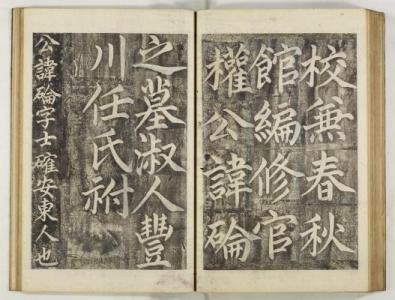 校兼春秋
館編修官
權公諱碖
之墓淑人豐
川任氏祔
公諱碖字士確安東人也